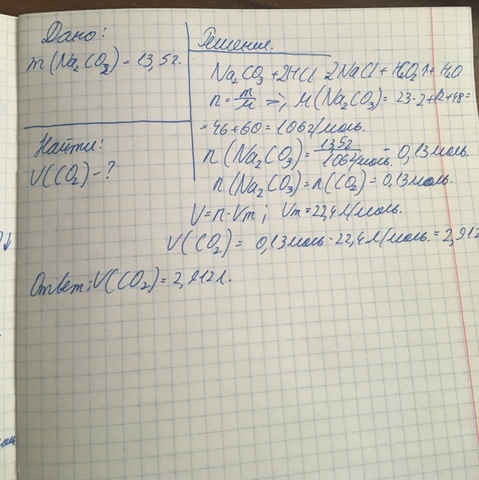 Дано:
m(Na2CO3) = 13,5г.
Найти:
V(CO2) - ?
Решение.
Na2CO3 + 2HCl 2NaCl + H2O + H2O
n = m/M => M(Na2CO3) = 23·2+12+48=
= 46+60 = 106г/моль.
n(Na2CO3) = 13,5г/106г/моль = 0,13моль
n(Na2CO3) = n(CO2) = 0,13моль.
V=n·Vm; Vm = 22,4л/моль.
V(CO2) = 0,13моль·22,4л/моль = 2,912
Ответ: V(CO2) = 2,912л.